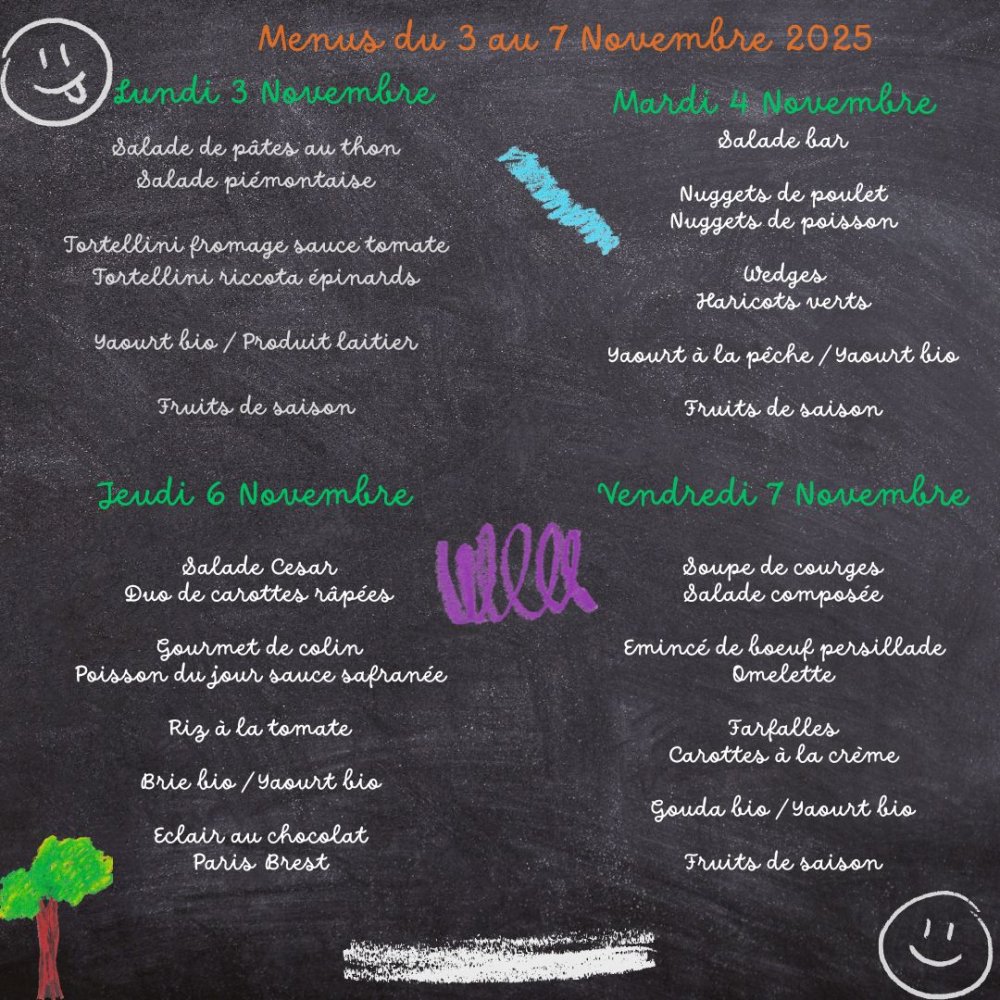 Menus du 3 au 7 Novembre 2025
Lundi 3 Novembre
Salade de pâtes au thon
Salade piémontaise
Tortellini fromage sauce tomate
Tortellini riccota épinards
Yaourt bio / Produit laitier
Fruits de saison
Mardi 4 Novembre
Salade bar
Nuggets de poulet
Nuggets de poisson
Wedges
Haricots verts
Yaourt à la pêche / Yaourt bio
Fruits de saison
Jeudi 6 Novembre
Salade Cesar
Duo de carottes râpées
Gourmet de colin
Poisson du jour sauce safranée
Riz à la tomate
Brie bio / Yaourt bio
Eclair au chocolat
Paris Brest
Vendredi 7 Novembre
Soupe de courges
Salade composée
Emincé de boeuf persillade
Omelette
Farfalles
Carottes à la crème
Gouda bio / Yaourt bio
Fruits de saison